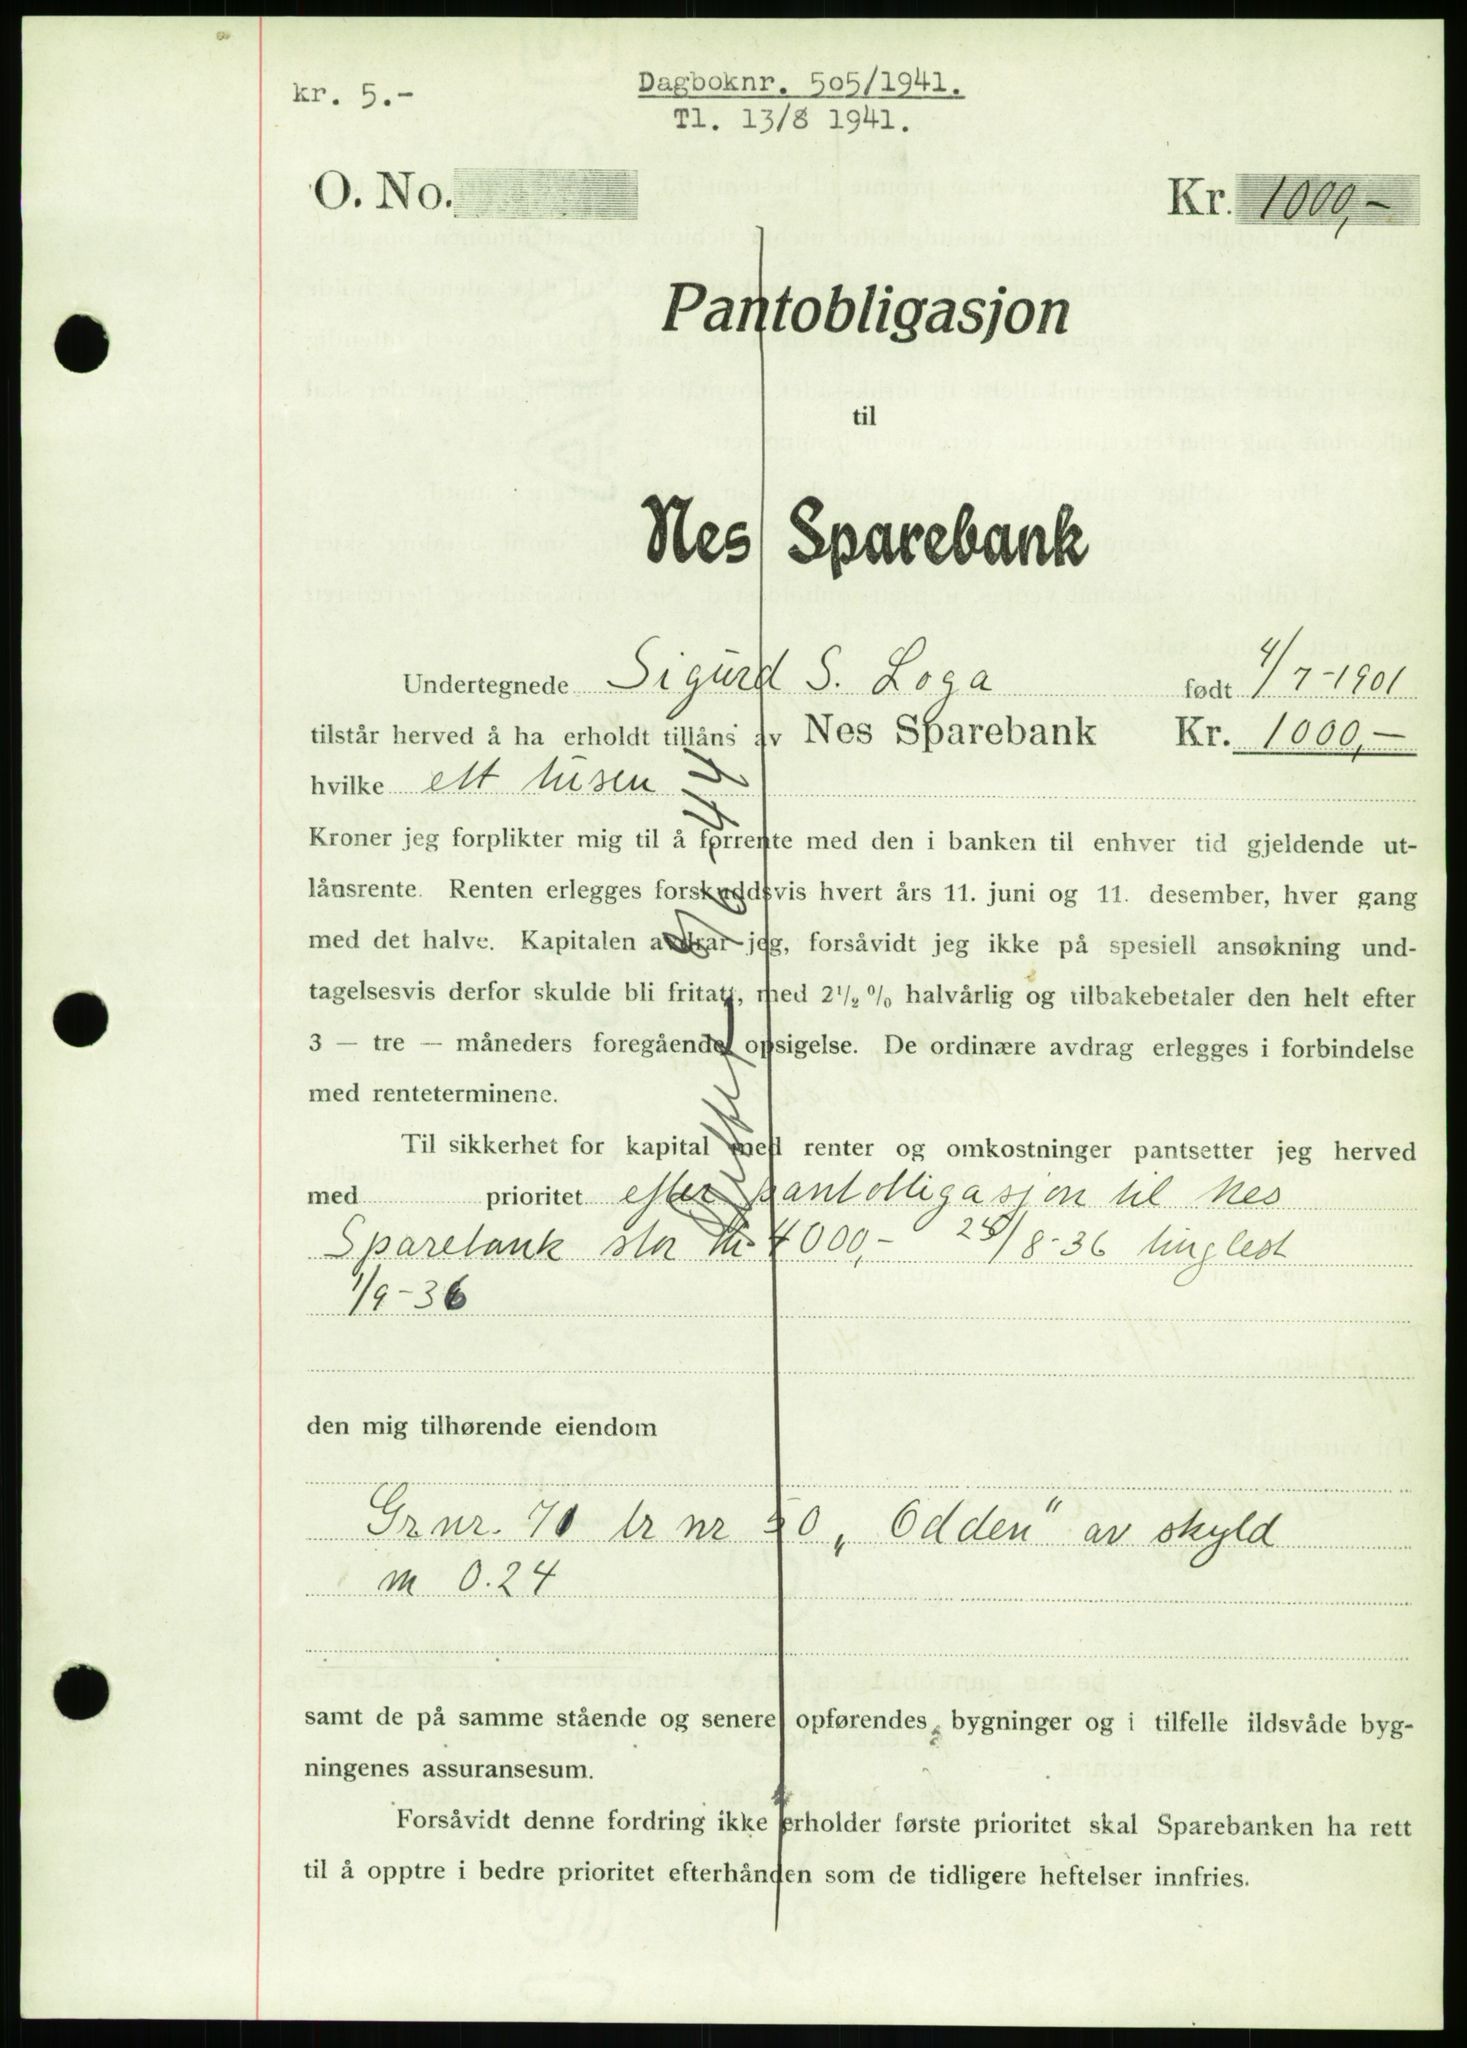 kr. 5.-
Dagboknr. 505/1941.
Tl. 13/8 1941.
O. No.
Kr. 1000,-
Pantobligasjon
til
Nes Sparebank
Undertegnede Sigurd S. Loga født 4/7-1901
tilstår herved å ha erholdt tillåns av Nes Sparebank Kr. 1000,-
hvilke ett tusen
Kroner jeg forplikter mig til å forrente med den i banken til enhver tid gjeldende ut-
lånsrente. Renten erlegges forskuddsvis hvert års 11. juni og 11. desember, hver gang
med det halve. Kapitalen avdrar jeg, forsåvidt jeg ikke på spesiell ansøkning und-
tagelsesvis derfor skulde bli fritatt, med 2½ % halvårlig og tilbakebetaler den helt efter
3 — tre — måneders foregående opsigelse. De ordinære avdrag erlegges i forbindelse
med renteterminene.
Til sikkerhet for kapital med renter og omkostninger pantsetter jeg herved
med prioritet efter pantobligasjon til Nes
Sparebank stor kr 4000,- 28/8-36 tinglest
1/9-36
den mig tilhørende eiendom
Gr nr. 70 br nr 50 „Odden" av skyld
m 0.24
samt de på samme stående og senere opførendes bygninger og i tilfelle ildsvåde byg-
ningenes assuransesum.
Forsåvidt denne fordring ikke erholder første prioritet skal Sparebanken ha rett
til å opptre i bedre prioritet efterhånden som de tidligere heftelser innfries.